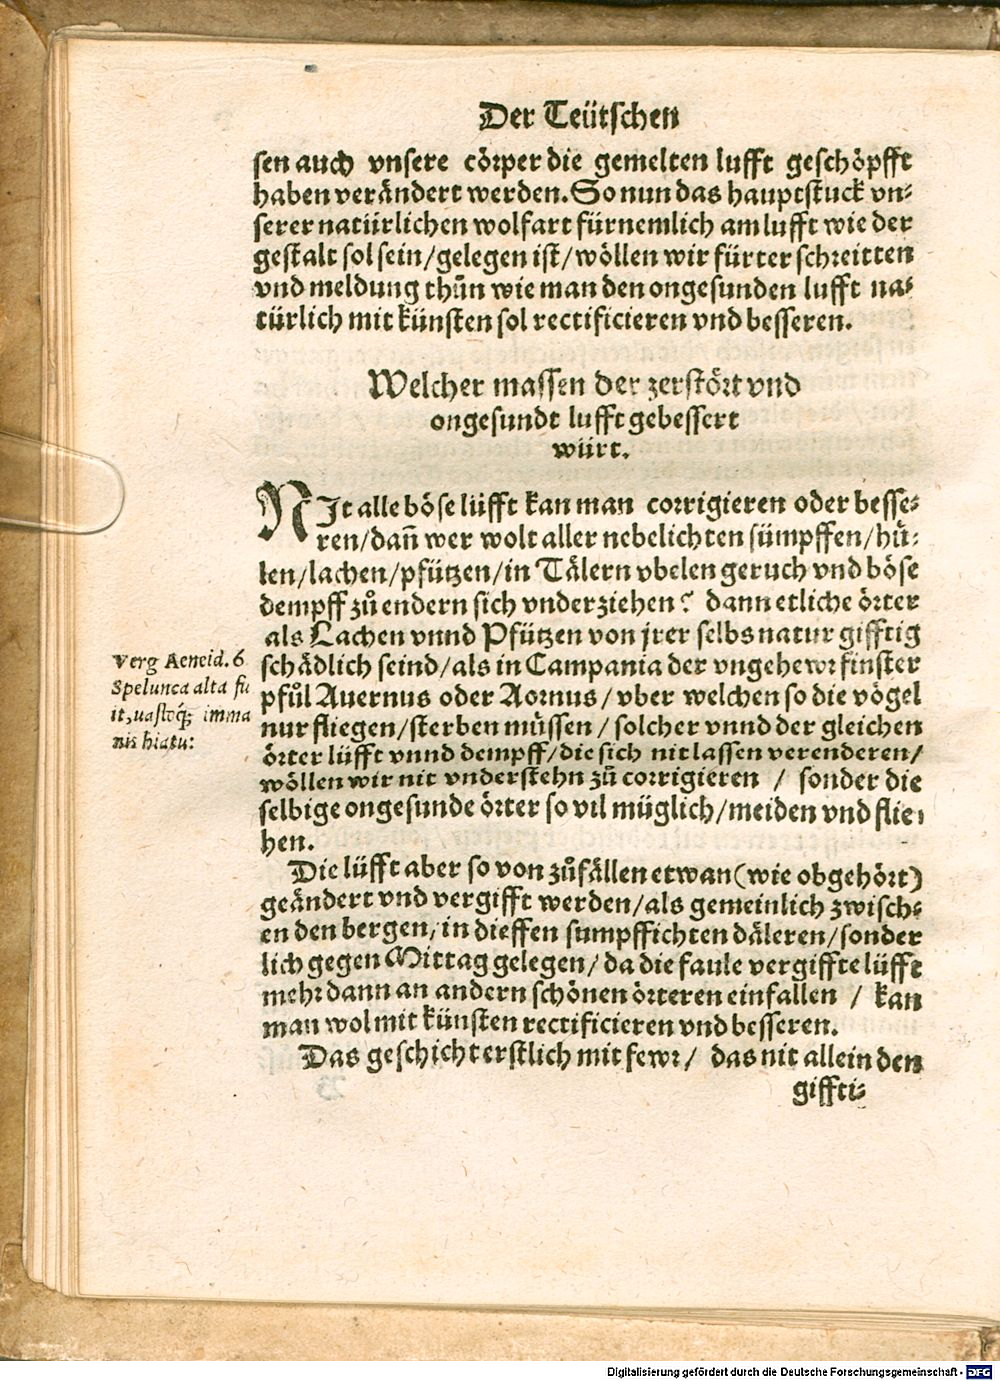 Der Teütschen
sen auch vnsere cörper die gemelten lufft geschöpfft
haben verändert werden. So nun das hauptstuck vn-
serer natürlichen wolfart fürnemlich am lufft wie der
gestalt sol sein/gelegen ist/wöllen wir fürter schreitten
vnd meldung thůn wie man den ongesunden lufft na-
türlich mit künsten sol rectificieren vnd besseren.
Welcher massen der zerstört vnd
ongesundt lufft gebessert
würt.
NIt alle böse lüfft kan man corrigieren oder besse-
ren/dañ wer wolt aller nebelichten sümpffen/hü-
len/lachen/pfützen/in Tälern vbelen geruch vnd böse
dempff zů endern sich vnderziehen? dann etliche örter
als Lachen vnnd Pfützen von jrer selbs natur gifftig
Verg Aeneid. 6
schädlich seind/als in Campania der vngehewr finster
Spelunca alta fu
pfůl Auernus oder Aornus/ vber welchen so die vögel
it, uastoq́; imma
nur fliegen/sterben müssen/ solcher vnnd der gleichen
nis hiatu:
örter lüfft vnnd dempff/die sich nit lassen verenderen/
wöllen wir nit vnderstehn zů corrigieren / sonder die
selbige ongesunde örter so vil müglich/meiden vnd flie-
hen.
Die lüfft aber so von zůfällen etwan (wie obgehört)
geändert vnd vergifft werden/als gemeinlich zwisch-
en den bergen/in dieffen sumpffichten däleren/sonder
lich gegen Mittag gelegen/ da die faule vergiffte lüfft
mehr dann an andern schönen örteren einfallen / kan
man wol mit künsten rectificieren vnd besseren.
Das geschicht erstlich mit fewr/ das nit allein den
giffti-
Digitalisierung gefördert durch die Deutsche Forschungsgemeinschaft - DFG